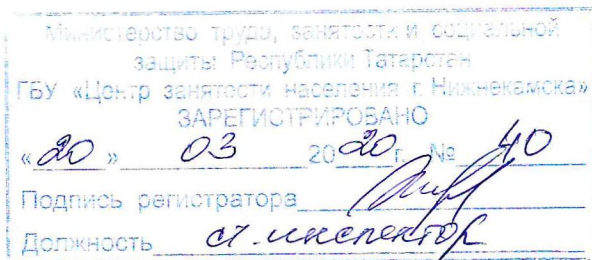 Министерство труда, занятости и социальной
защиты Республики Татарстан
ГБУ «Центр занятости населения г. Нижнекамска»
ЗАРЕГИСТРИРОВАНО
«20» 03 2020 г. № 40
Подпись регистратора
Должность ст. инспектор